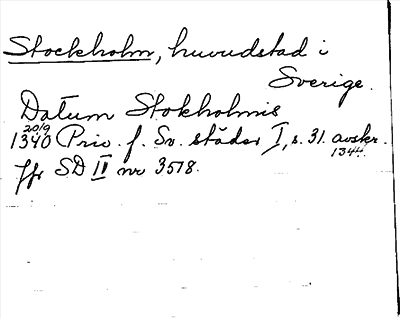 Stockholm, huvudstad i
Sverige.
Datum Stokholmis
20/9
1340 Priv. f. Sv. städer I, s. 31. avskr.
1344.
jfr SD II nr 3518.